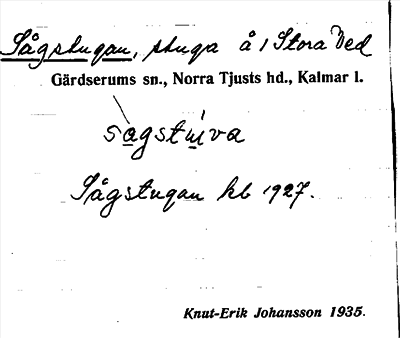 Sågstugan, stuga å 1 Stora Ved
Gärdserums sn., Norra Tjusts hd., Kalmar l.
sagstuva
Sågstugan kb 1927.
Knut-Erik Johansson 1935.